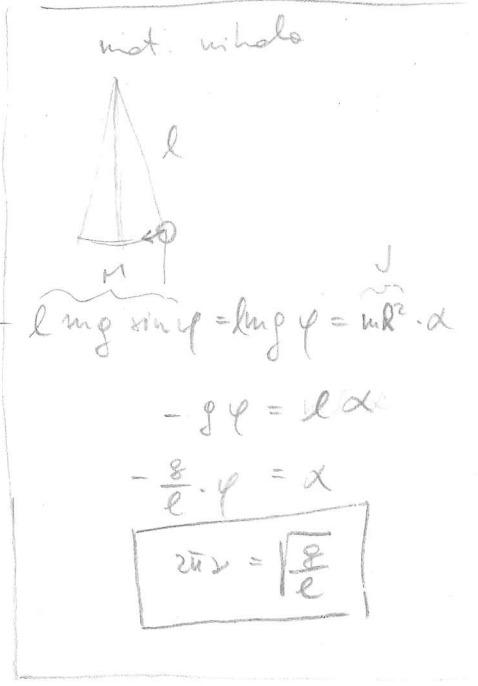 mat. nihalo
l
M
J
- l mg sin φ = lmg φ = ml² · α
- g φ = l α
- g/l · φ = α
2πν = √(g/l)